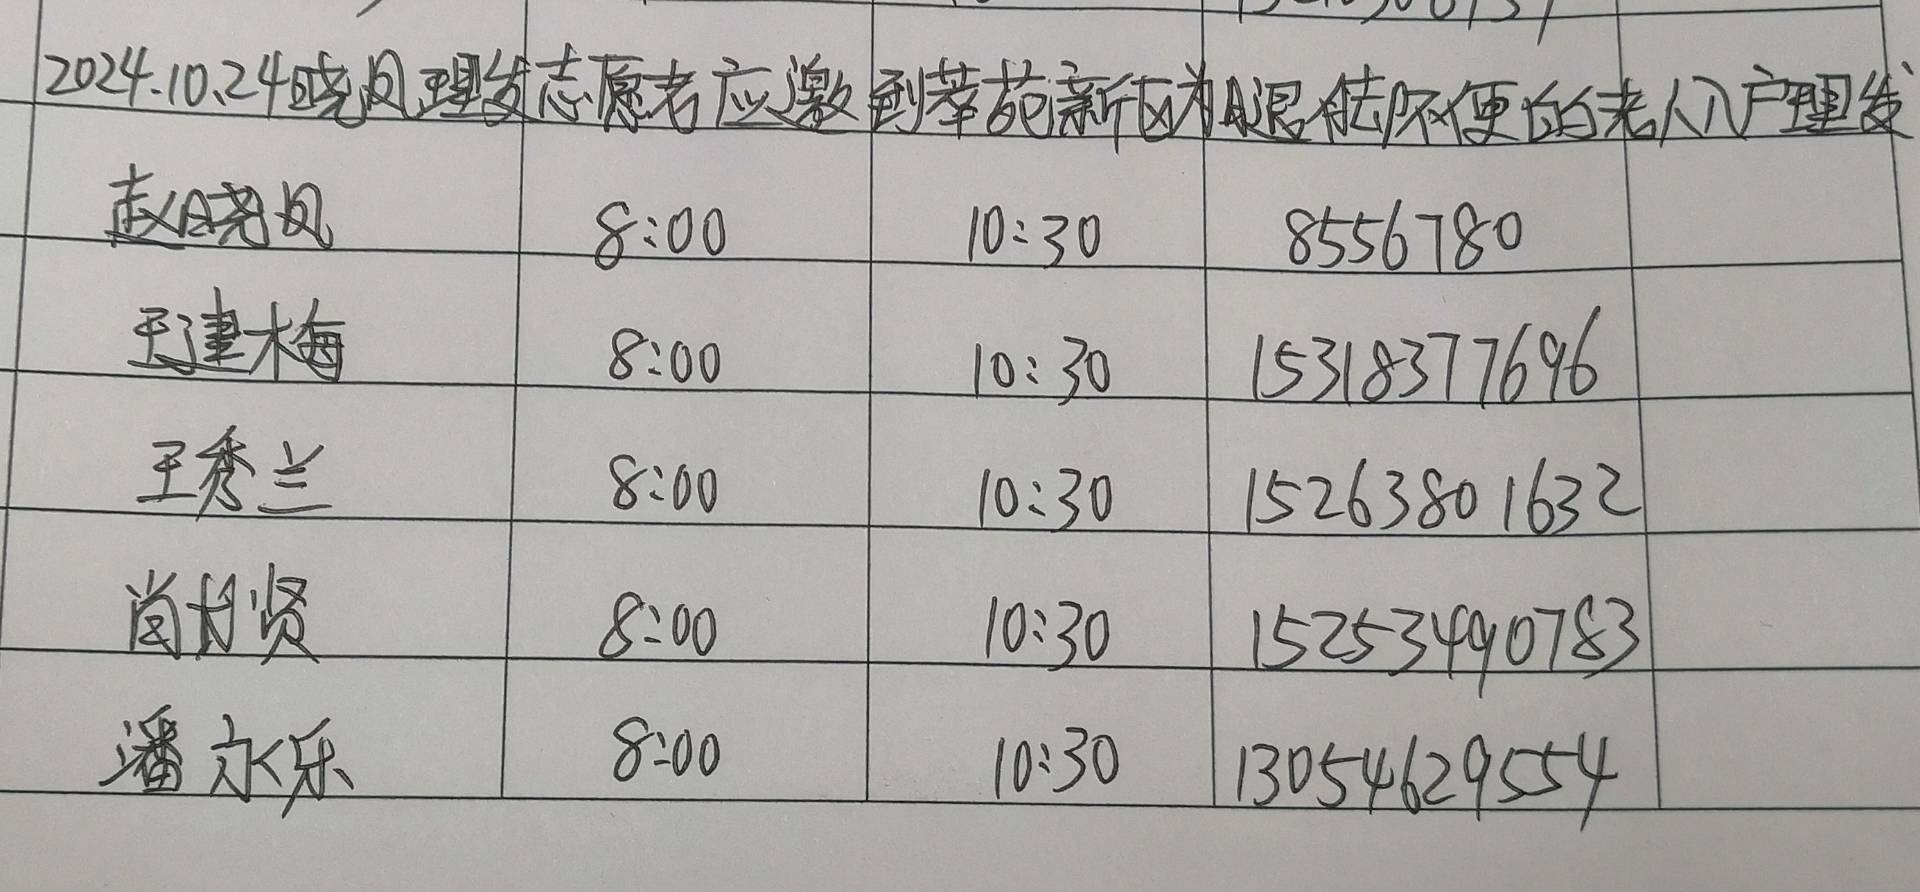 2024.10.24晓风理发志愿者应邀到莘苑新区为腿脚不便的老人入户理发
赵晓风 8:00 10:30 8556780
王建梅 8:00 10:30 15318377696
王秀兰 8:00 10:30 15263801632
尚村贤 8:00 10:30 15253490783
潘永乐 8:00 10:30 13054629554